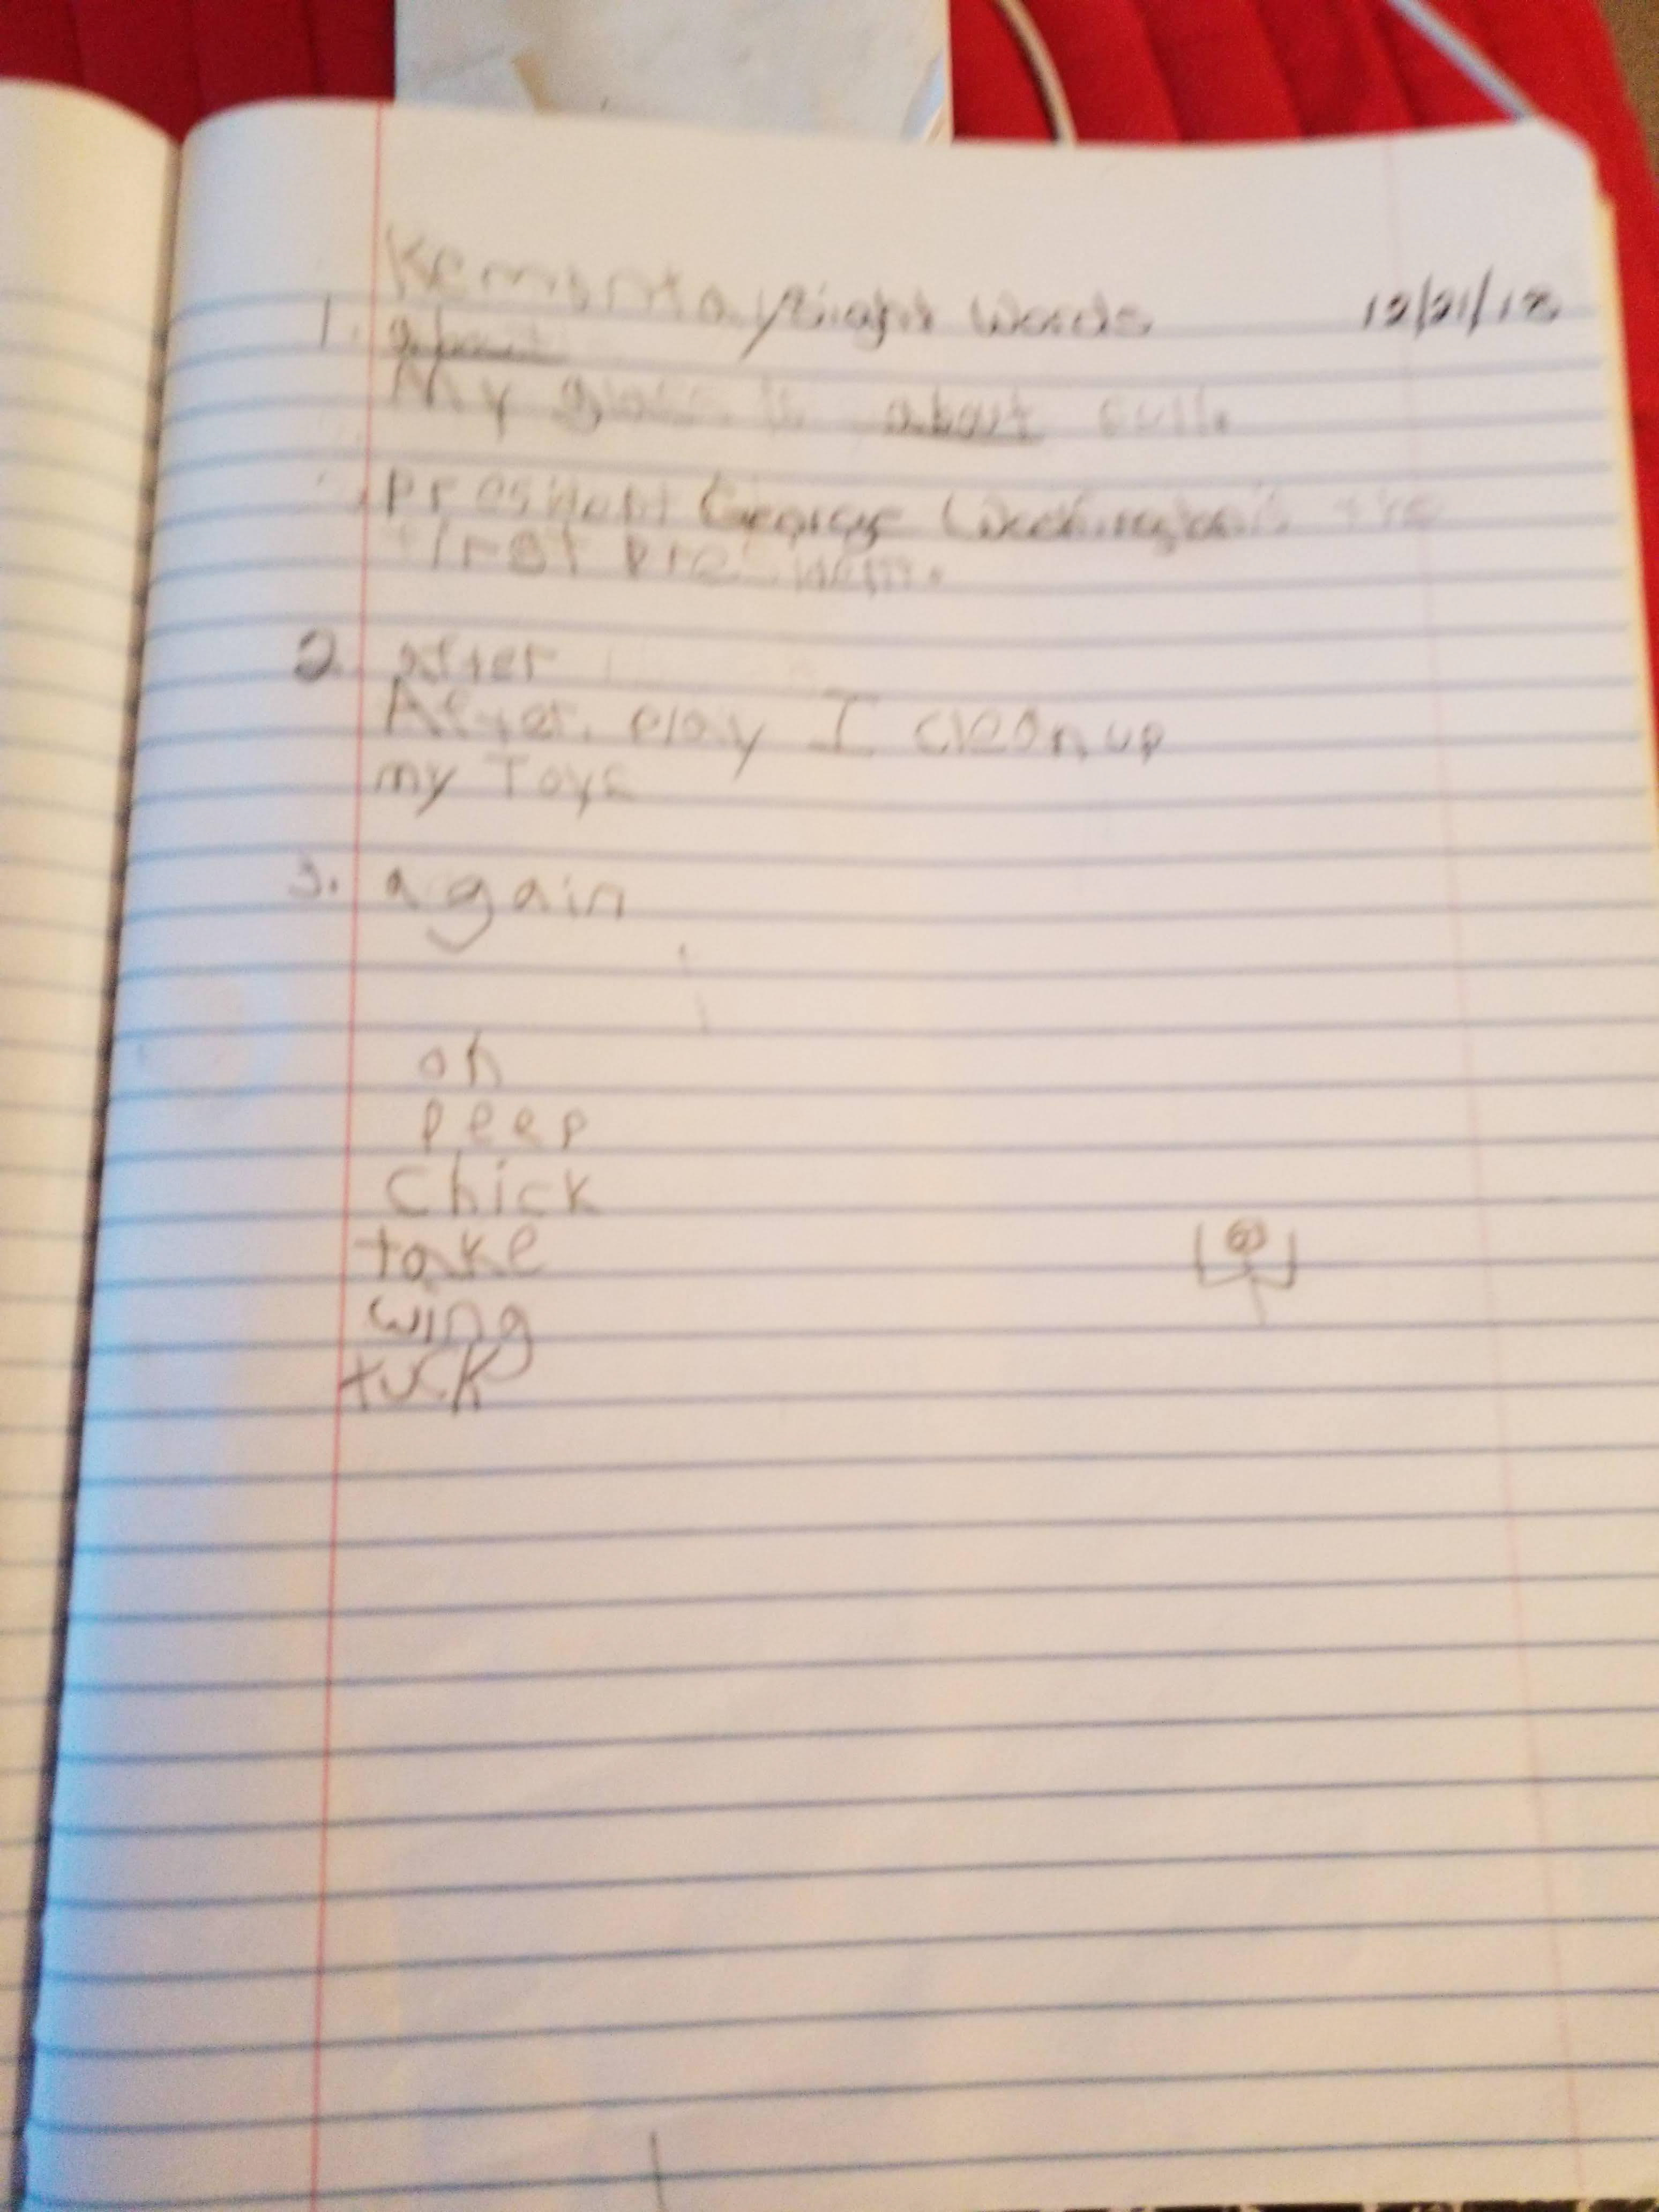 Kemonta/Sight Words 12/21/18
1. about
My glass is about full.
President George Washington the
first
2. after
After play I clean up
my Toys
3. again
oh
peep
Chick
take
wing
tuck